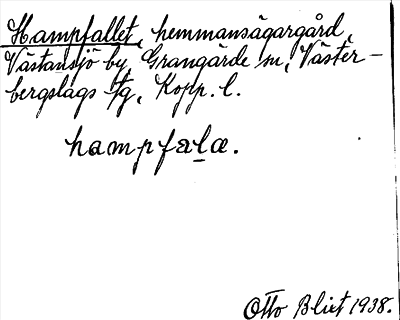 Hampfallet, hemmansägargård,
Västansjö by, Grangärde sn, Väster-
bergslags tg, Kopp. l.
hampfala.
Otto Blixt 1938.